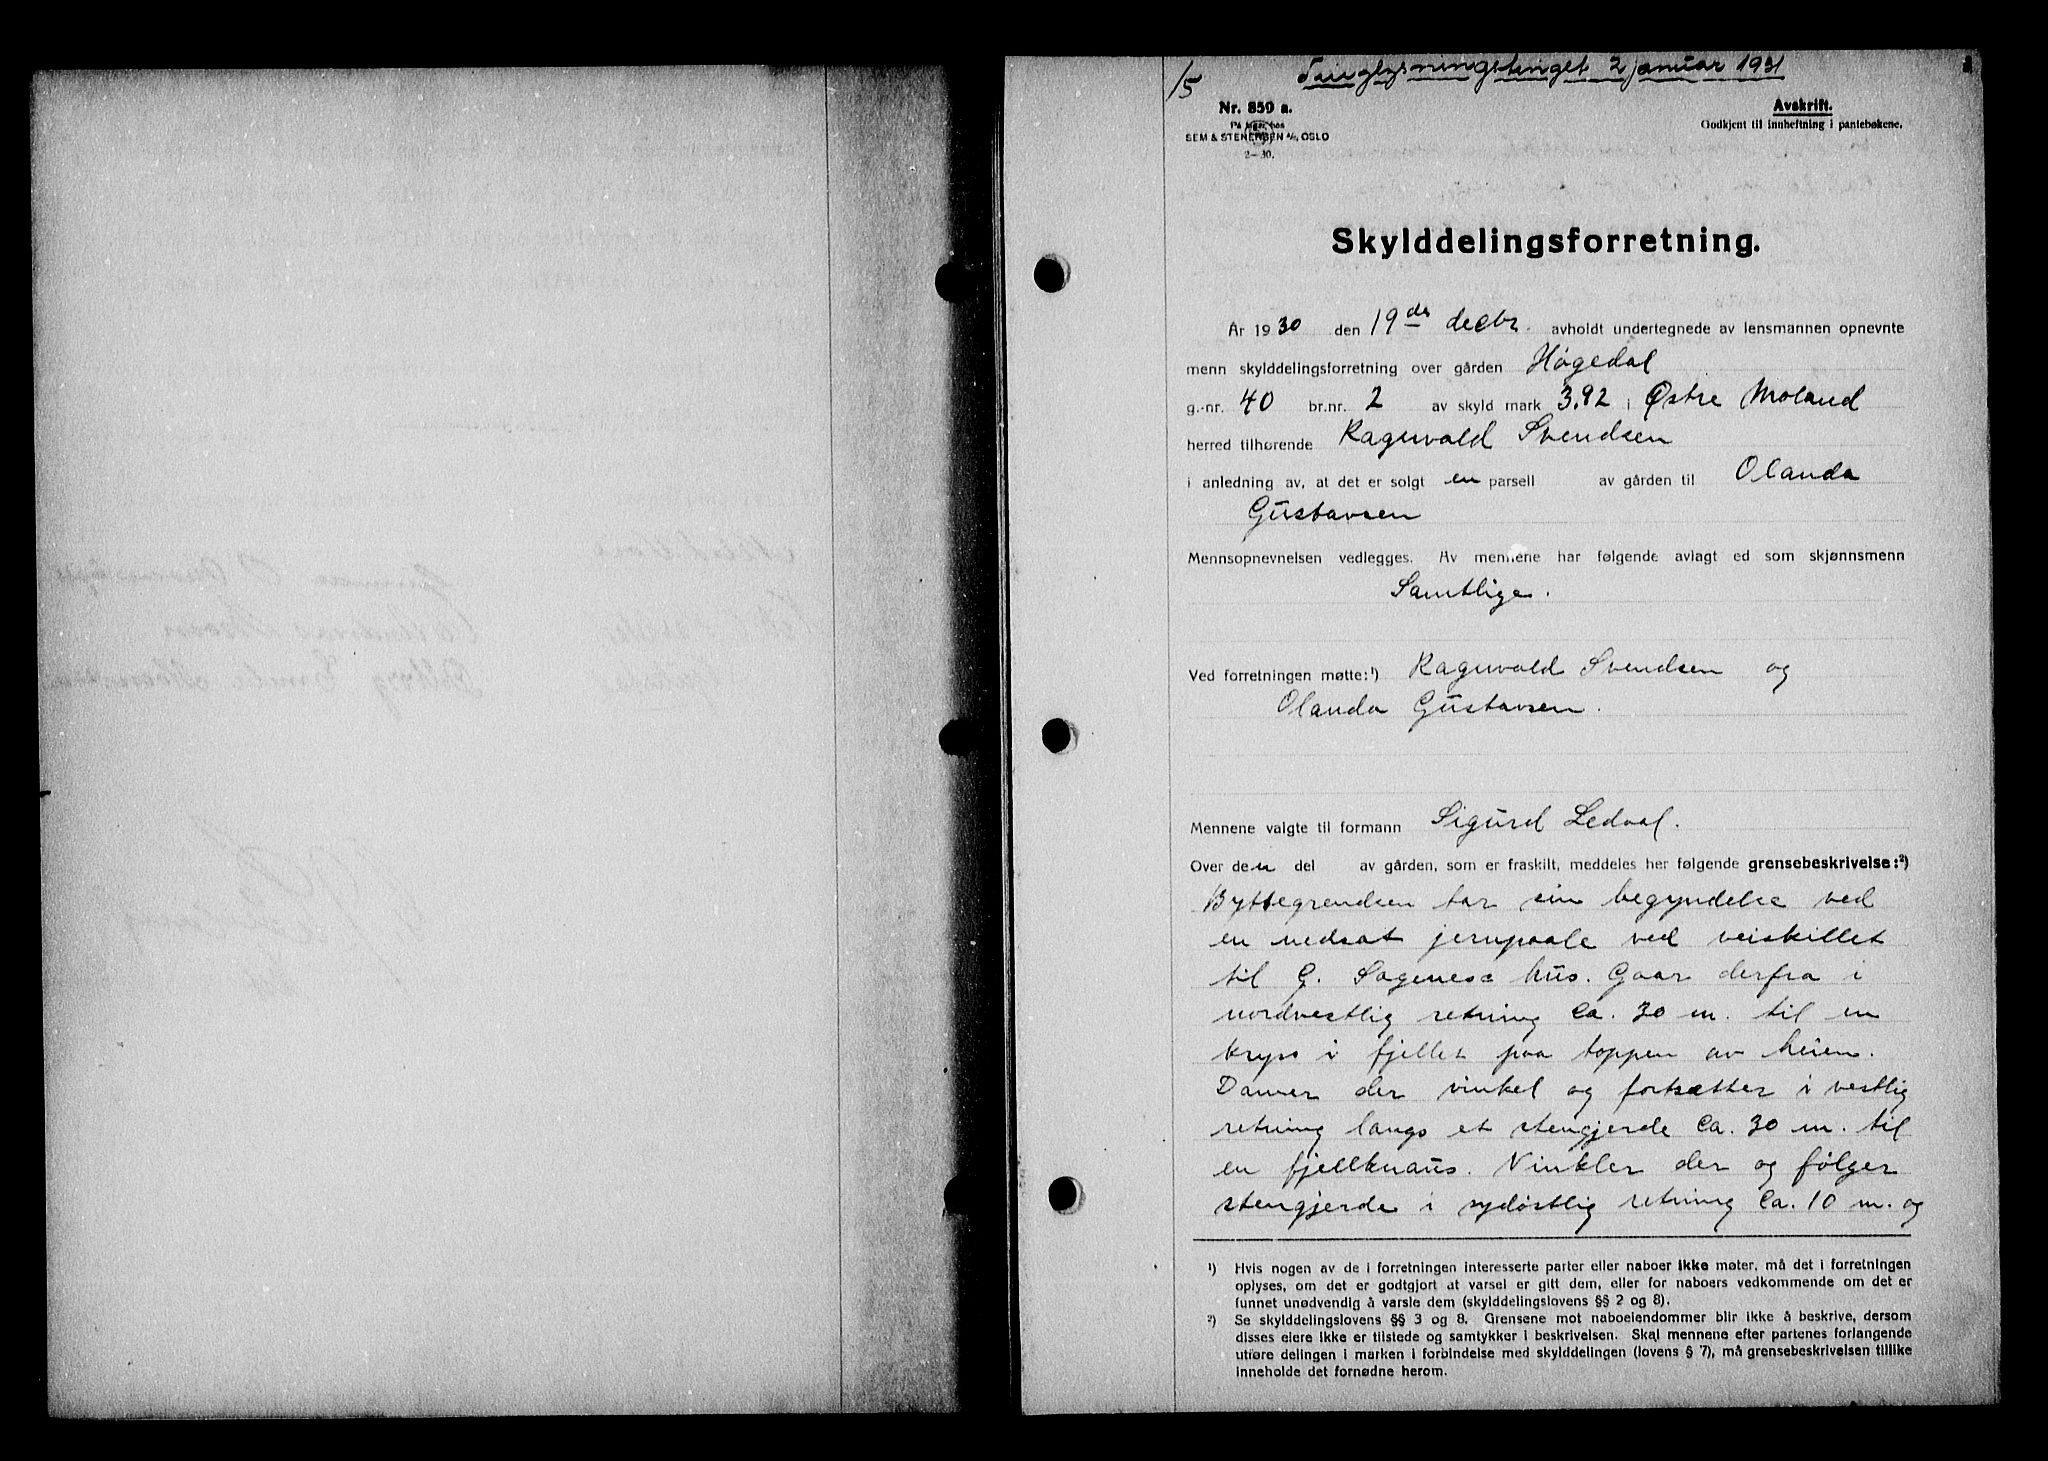 15 Tinglysningstinget 2 januar 1931
Nr. 850 a.
På lager hos
SEM & STENERSEN A/S, OSLO
2—30.
Avskrift.
Godkjent til innheftning i pantebøkene.
Skylddelingsforretning.
År 1930 den 19de decbr. avholdt undertegnede av lensmannen opnevnte
menn skylddelingsforretning over gården Høgedal
g.-nr. 40 br.nr. 2 av skyld mark 3,92 i Østre Moland
herred tilhørende Ragnvald Svendsen
i anledning av, at det er solgt en parsell av gården til Olanda
Gustavsen
Mennsopnevnelsen vedlegges. Av mennene har følgende avlagt ed som skjønnsmenn
Samtlige.
Ved forretningen møtte:¹) Ragnvald Svendsen og
Olanda Gustavsen.
Mennene valgte til formann Sigurd Ledaal.
Over den del av gården, som er fraskilt, meddeles her følgende grensebeskrivelse:²)
Byttegrendsen tar sin begyndelse ved
en nedsat jernpaale ved veiskillet
til G. Sagenes hus. Gaar derfra i
nordvestlig retning ca. 30 m. til en
kryss i fjellet paa toppen av heien.
Danner der vinkel og fortsætter i vestlig
retning langs et stengjerde ca. 30 m. til
en fjellknaus. Vinkler der og følger
stengjerde i sydøstlig retning ca. 10 m. og
¹) Hvis nogen av de i forretningen interesserte parter eller naboer ikke møter, må det i forretningen
oplyses, om det er godtgjort at varsel er gitt dem, eller for naboers vedkommende om det er
funnet unødvendig å varsle dem (skylddelingslovens §§ 2 og 8).
²) Se skylddelingslovens §§ 3 og 8. Grensene mot naboeiendommer blir ikke å beskrive, dersom
disses eiere ikke er tilstede og samtykker i beskrivelsen. Skal mennene efter partenes forlangende
utføre delingen i marken i forbindelse med skylddelingen (lovens § 7), må grensebeskrivelsen tillike
inneholde det fornødne herom.